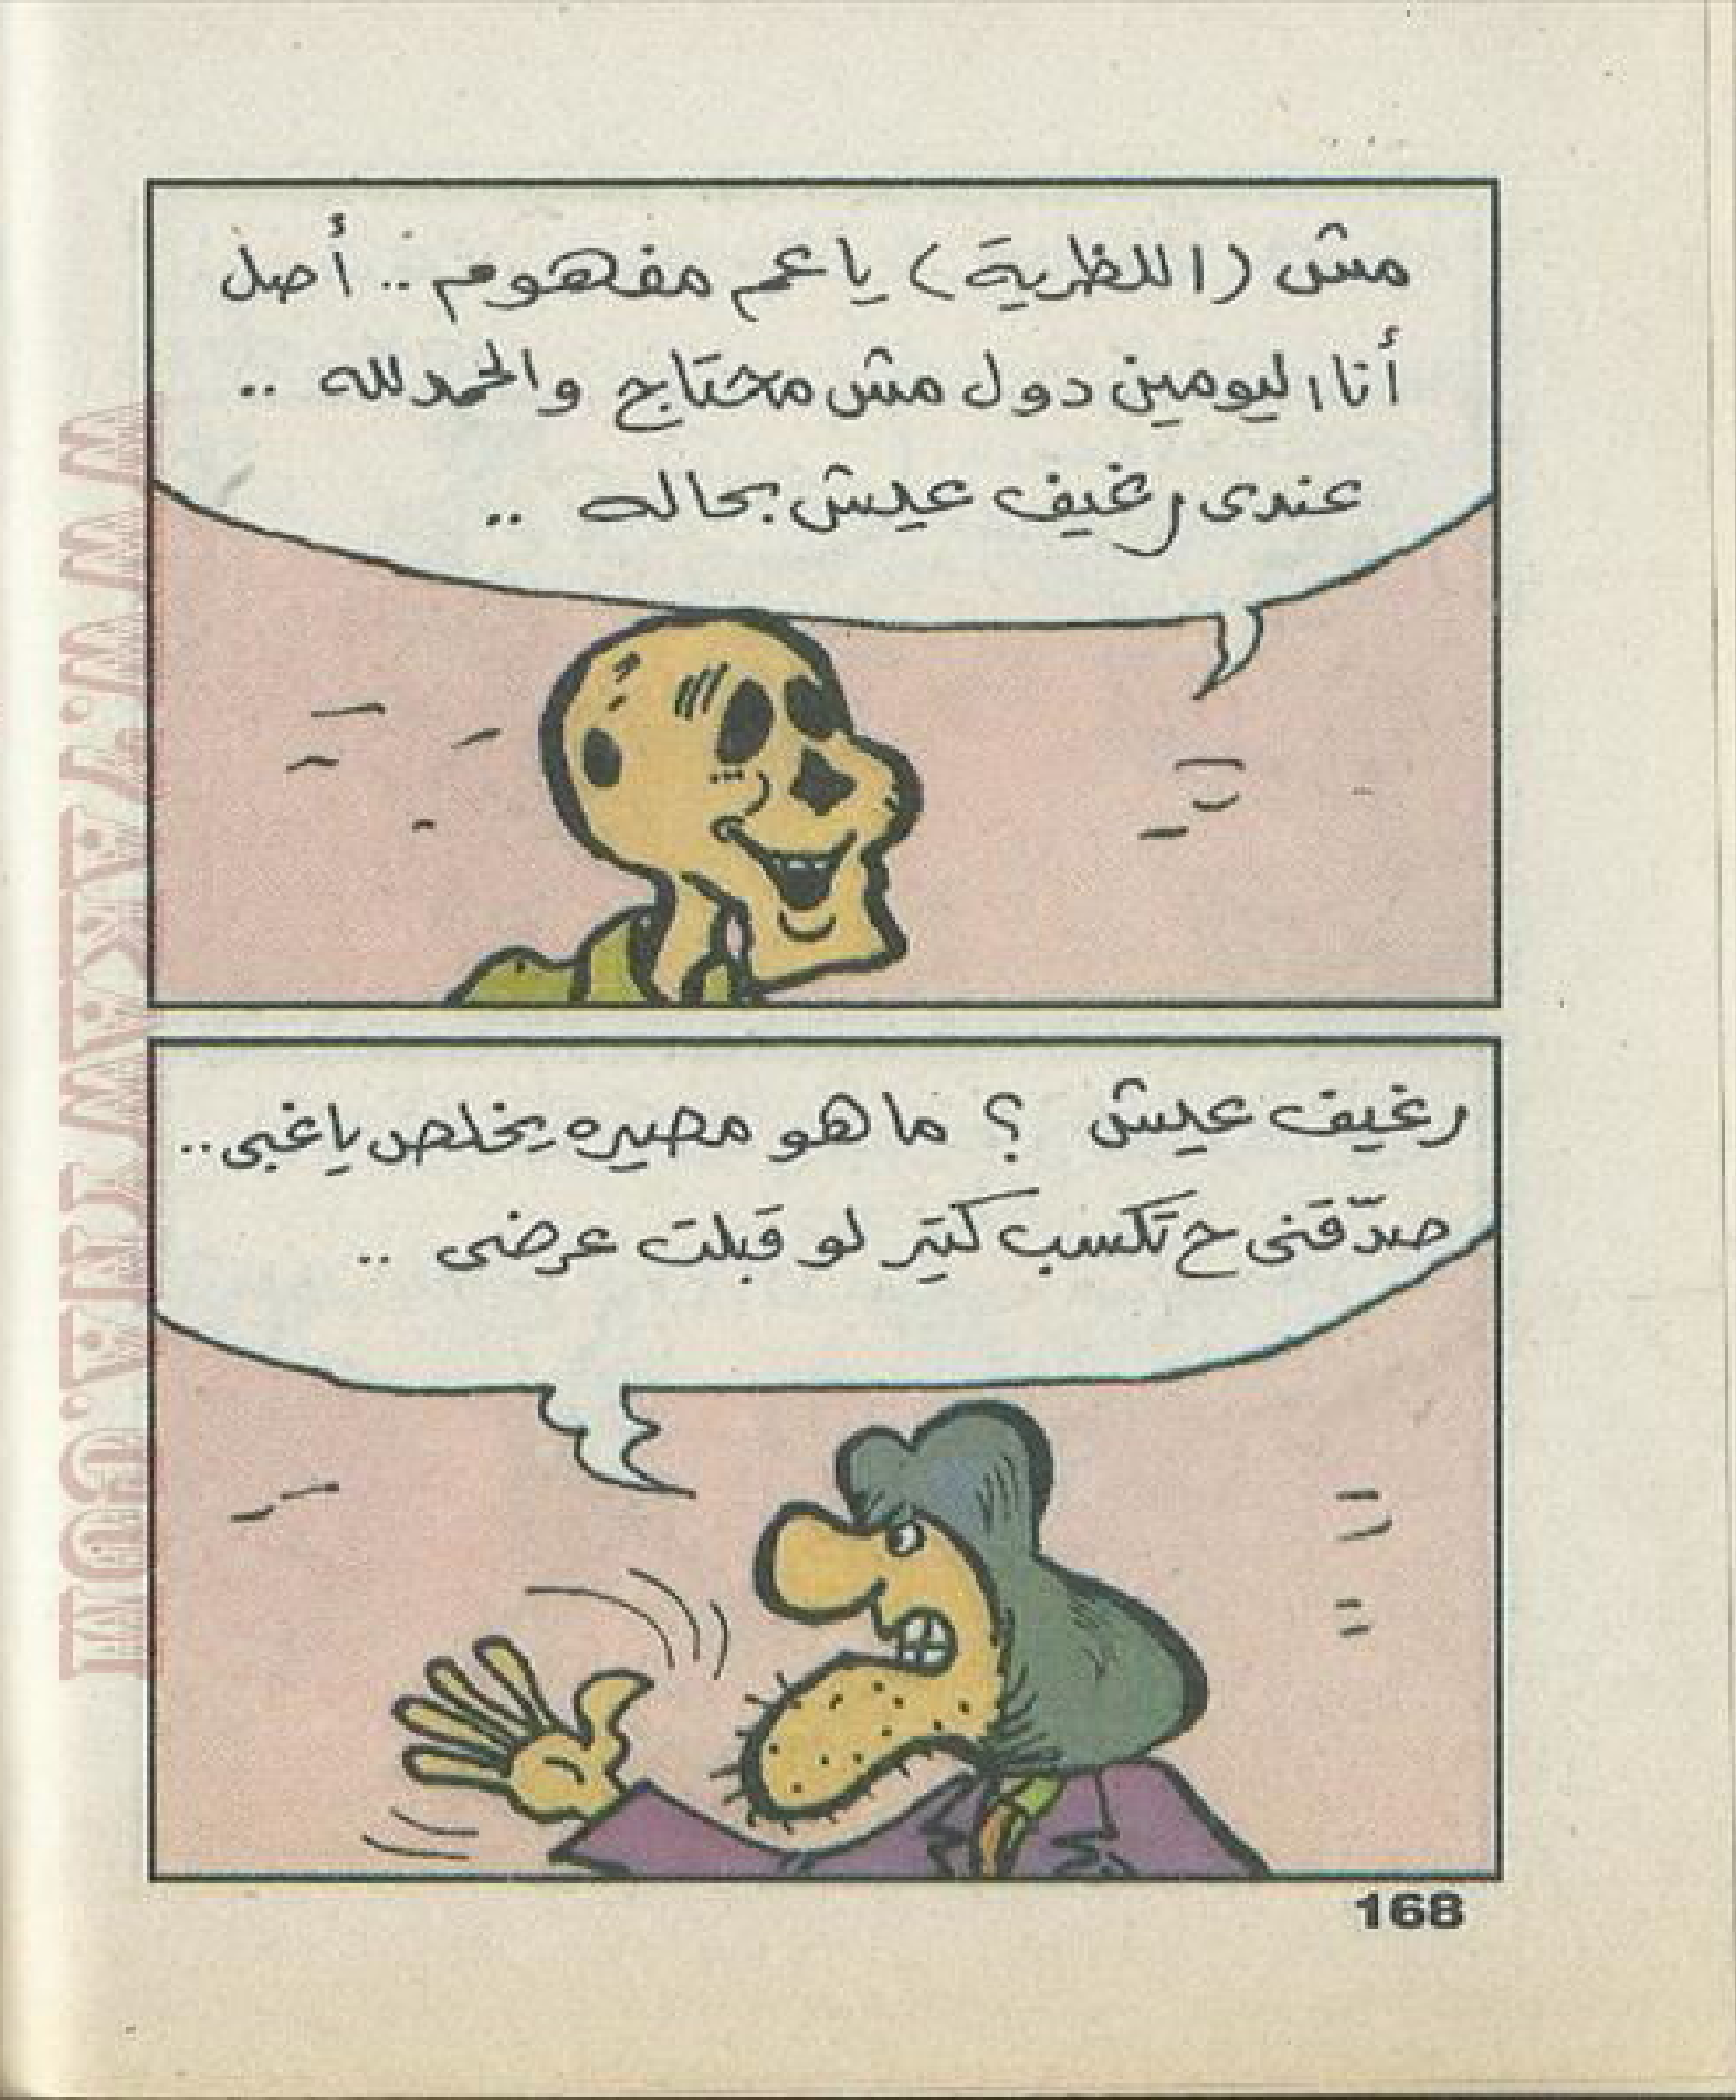 مش (اللظرية) يا عم مفهوم .. أصل
أنا اليومين دول مش محتاج والحمد لله ..
عندى رغيف عيش بحاله ..
رغيف عيش ؟ ما هو مصيره يخلص يا غبى ..
صدّقنى ح تكسب كتير لو قبلت عرضى ..
168
WWW.TAKAWINA.COM